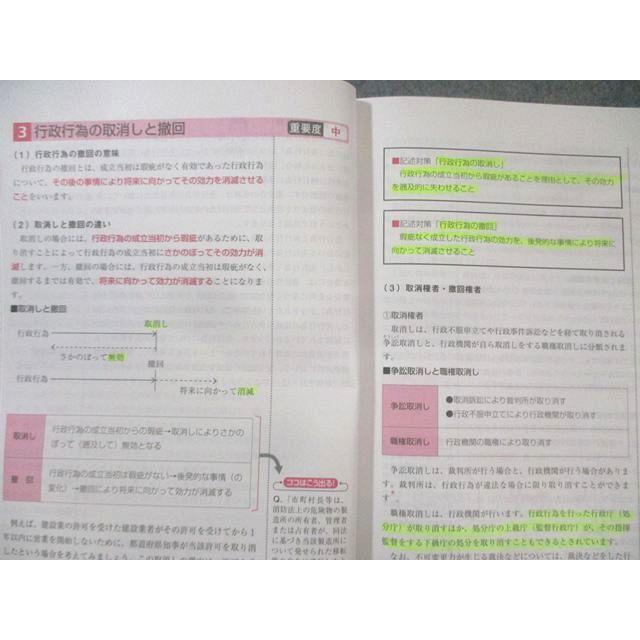 3 行政行為の取消しと撤回 重要度 中
(1) 行政行為の撤回の意味
行政行為の撤回とは、成立当初は瑕疵がなく有効であった行政行為
について、その後の事情により将来に向かってその効力を消滅させる
ことをいいます。
(2) 取消しと撤回の違い
取消しの場合には、行政行為の成立当初から瑕疵があるために、取
り消すことによって行政行為の成立当初にさかのぼってその効力が消
滅します。一方、撤回の場合には、行政行為の成立当初は瑕疵がなく、
撤回するまでは有効で、将来に向かって効力が消滅することになりま
す。
■取消しと撤回
取消し
行政行為
さかのぼって無効
撤回
行政行為
将来に向かって消滅
取消し 行政行為の成立当初からの瑕疵→取消しによりさかの
ぼって(遡及して)無効となる
撤 回 行政行為の成立当初は瑕疵がない→後発的な事情(の
変化)→撤回により将来に向かって効力が消滅する
例えば、建設業の許可を受けた建設業者がその許可を受けてから1
年以内に営業を開始しないために、都道府県知事が当該許可を取り消
したという場合を考えてみましょう。
ココはこう出る!
Q.「市町村長等は、
消防法上の危険物の製
造所の所有者、管理者
または占有者が、同法
に基づき当該製造所に
ついて発せられた移転
■記述対策「行政行為の取消し」
行政行為の成立当初から瑕疵があることを理由として、その効力
を遡及的に失わせること
■記述対策「行政行為の撤回」
瑕疵なく成立した行政行為の効力を、後発的な事情により将来に
向かって消滅させること
(3) 取消権者・撤回権者
①取消権者
取消しは、行政不服申立てや行政事件訴訟などを経て取り消される
争訟取消しと、行政機関が自ら取消しをする職権取消しに分類されま
す。
■争訟取消しと職権取消し
争訟取消し ●取消訴訟により裁判所が取り消す
●行政不服申立てにより行政機関が取り消す
職権取消し 行政機関の職権により取り消す
争訟取消しは、裁判所が行う場合と、行政機関が行う場合がありま
す。裁判所は、行政行為が違法な場合に限り取り消すことができます
。
職権取消しは、行政機関が行います。行政行為を行った行政庁(処
分庁)が取り消すほか、処分庁の上級庁(監督行政庁)が、その指揮
監督をする下級庁の処分を取り消すこともできるとされています。
なお、不可変更力が生じる裁決などについては、裁決などをした行